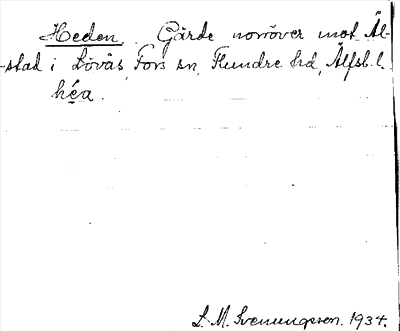 Heden. Gärde norröver mot Äl-
-stad i Lövås, Fors sn, Flundre hd, Älfsb. l.
hé̜a.
L. M. Svenungsson. 1934.